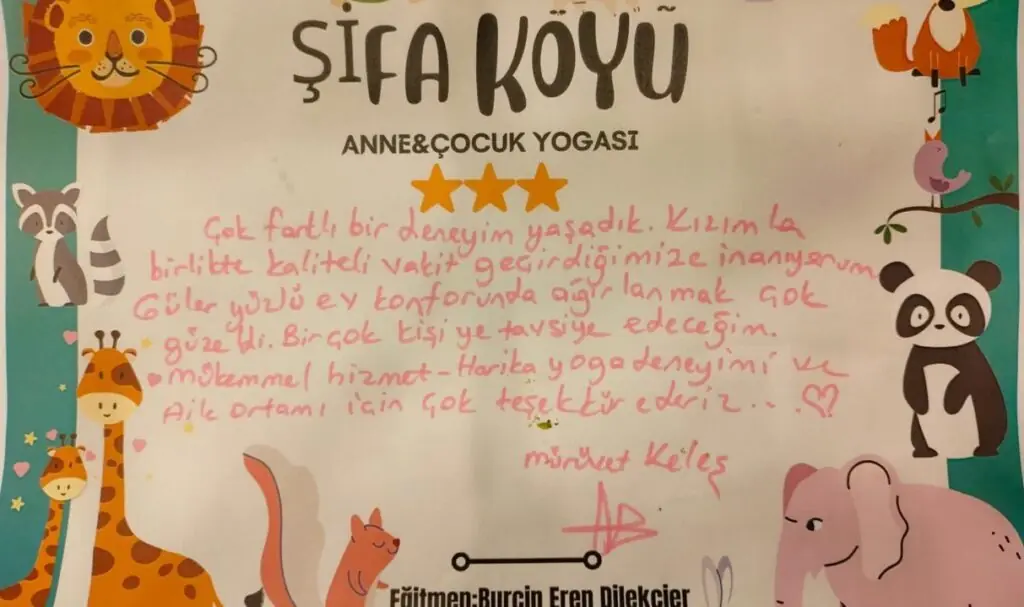 ŞİFA KÖYÜ
ANNE&ÇOCUK YOGASI
Çok farklı bir deneyim yaşadık. Kızımla
birlikte kaliteli vakit geçirdiğimize inanıyorum
Güler yüzlü ev konforunda ağırlanmak çok
güzeldi. Birçok kişiye tavsiye edeceğim.
mükemmel hizmet - Harika yoga deneyimi ve
Aile ortamı için çok teşekkür ederiz... ♡
mürüvet Keleş
Eğitmen:Burçin Eren Dilekçier